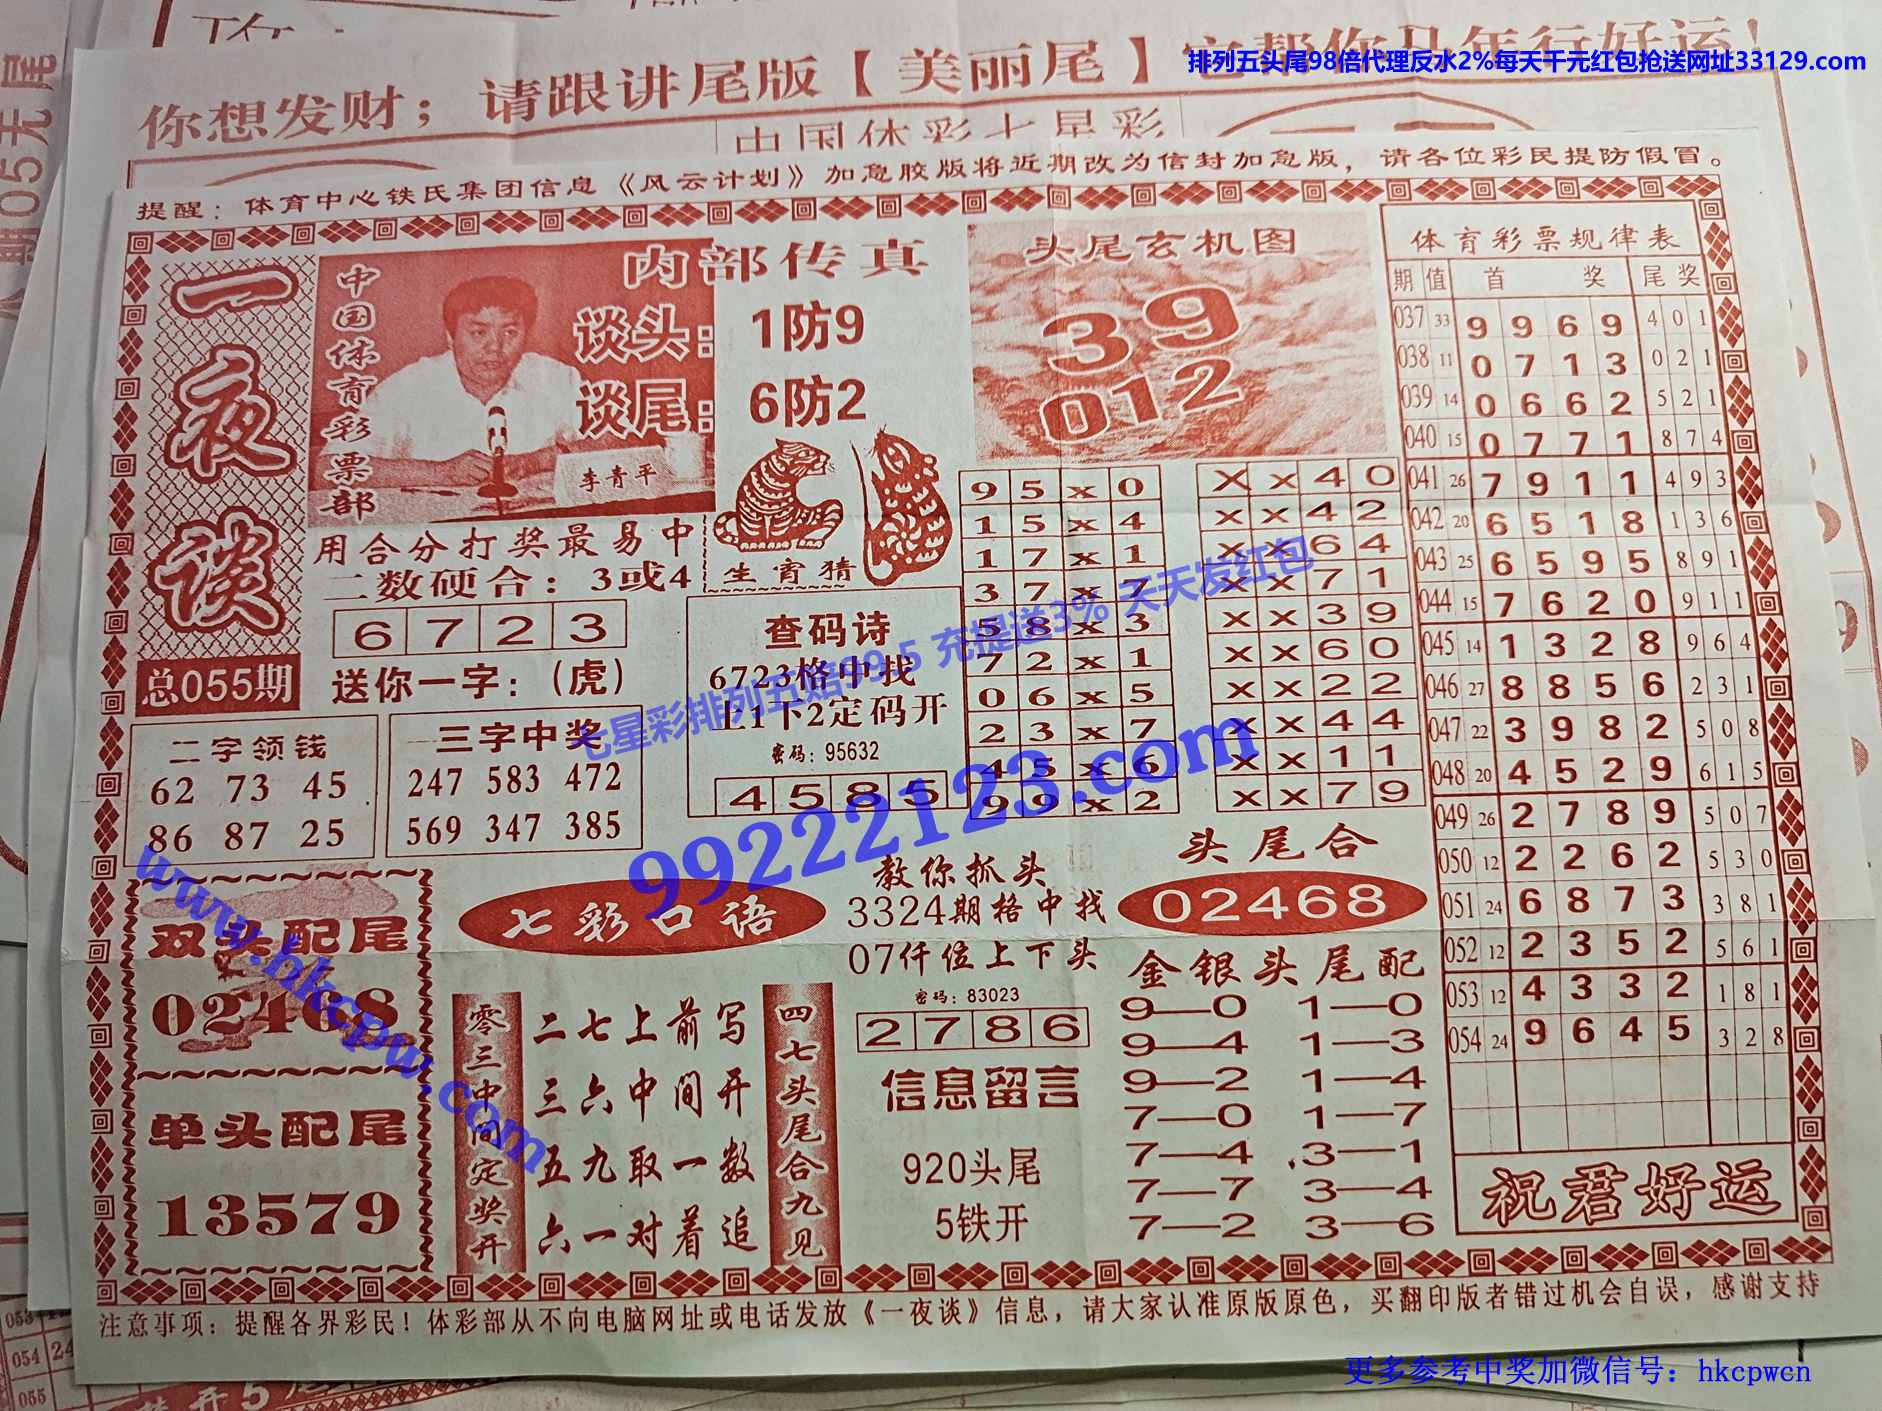 你想发财；请跟讲尾版【美丽尾】它帮你马年行好运！
排列五头尾98倍代理反水2%每天千元红包抢送网址33129.com
中国体彩七星彩
提醒：体育中心铁氏集团信息《风云计划》加急胶版将近期改为信封加急版，请各位彩民提防假冒。
一夜谈
总055期
中国体育彩票部
内部传真
谈头：1防9
谈尾：6防2
李青平
用合分打奖最易中
二数硬合：3或4
6 7 2 3
送你一字：(虎)
生宵猜
头尾玄机图
39
012
二字领钱
62 73 45
86 87 25
三字中奖
247 583 472
569 347 385
查码诗
6723格中找
上1下2定码开
密码：95632
4 5 8 5
9 5 x 0
1 5 x 4
1 7 x 1
3 7 x 7
5 8 x 3
7 2 x 1
0 6 x 5
2 3 x 7
4 5 x 6
9 9 x 2
X x 4 0
x x 4 2
x x 6 4
x x 7 1
x x 3 9
x x 6 0
x x 2 2
x x 4 4
x x 1 1
x x 7 9
体育彩票规律表
期 值 首奖 尾奖
037 33 9 9 6 9 4 0 1
038 11 0 7 1 3 0 2 1
039 14 0 6 6 2 5 2 1
040 15 0 7 7 1 8 7 4
041 26 7 9 1 1 4 9 3
042 20 6 5 1 8 1 3 6
043 25 6 5 9 5 8 9 1
044 15 7 6 2 0 9 1 1
045 14 1 3 2 8 9 6 4
046 27 8 8 5 6 2 3 1
047 22 3 9 8 2 5 0 8
048 20 4 5 2 9 6 1 5
049 26 2 7 8 9 5 0 7
050 12 2 2 6 2 5 3 0
051 24 6 8 7 3 3 8 1
052 12 2 3 5 2 5 6 1
053 12 4 3 3 2 1 8 1
054 24 9 6 4 5 3 2 8
祝君好运
双头配尾
02468
单头配尾
13579
七彩口语
零三中间定奖开
二七上前写
三六中间开
五九取一数
六一对着追
四七头尾合九见
教你抓头
3324期格中找
07仟位上下头
密码：83023
2 7 8 6
信息留言
920头尾
5铁开
头尾合
02468
金银头尾配
9—0 1—0
9—4 1—3
9—2 1—4
7—0 1—7
7—4 3—1
7—7 3—4
7—2 3—6
七星彩排列五赔99.5 充提送3% 天天发红包
99222123.com
www.hkcpw.com
注意事项：提醒各界彩民！体彩部从不向电脑网址或电话发放《一夜谈》信息，请大家认准原版原色，买翻印版者错过机会自误，感谢支持
更多参考中奖加微信号：hkcpwcn
053
054 24
055